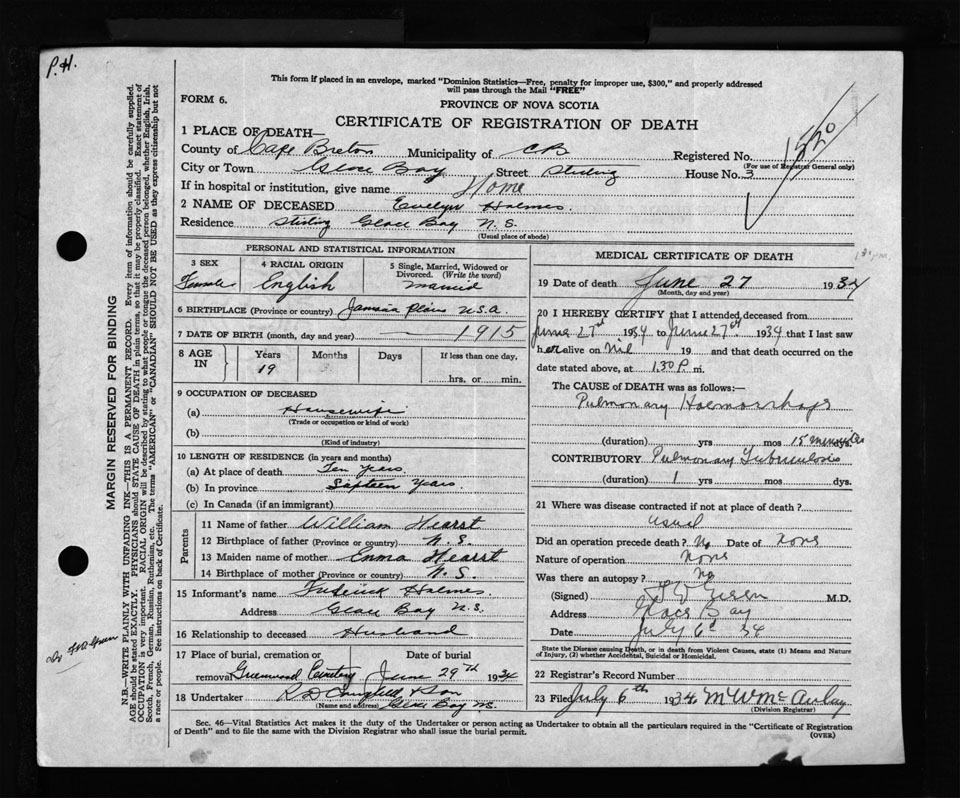 P.H.
This form if placed in an envelope, marked "Dominion Statistics—Free, penalty for improper use, $300," and properly addressed
will pass through the Mail "FREE"
FORM 6.
PROVINCE OF NOVA SCOTIA
CERTIFICATE OF REGISTRATION OF DEATH
1 PLACE OF DEATH—
County of Cape Breton Municipality of C B Registered No.
(For use of Registrar General only)
City or Town Glace Bay Street Sterling House No. 3
If in hospital or institution, give name Home
2 NAME OF DECEASED Evelyn Holmes.
Residence Sterling Glace Bay N. S.
(Usual place of abode)
PERSONAL AND STATISTICAL INFORMATION
3 SEX
Female
4 RACIAL ORIGIN
English
5 Single, Married, Widowed or
Divorced. (Write the word)
Married
6 BIRTHPLACE (Province or country) Jamaica Plains U.S.A.
7 DATE OF BIRTH (month, day and year) — 1915
8 AGE IN
Years Months Days If less than one day.
19
hrs. or min.
9 OCCUPATION OF DECEASED
(a) Housewife
(Trade or occupation or kind of work)
(b)
(Kind of industry)
10 LENGTH OF RESIDENCE (in years and months)
(a) At place of death Ten Years
(b) In province Sixteen Years.
(c) In Canada (if an immigrant)
Parents
11 Name of father William Hearst
12 Birthplace of father (Province or country) N. S.
13 Maiden name of mother Emma Hearst
14 Birthplace of mother (Province or country) N. S.
15 Informant's name Frederick Holmes.
Address Glace Bay N.S.
16 Relationship to deceased Husband
17 Place of burial, cremation or Date of burial
removal Greenwood Cemetery June 29th 1934
18 Undertaker R D Campbell & Son
(Name and address) Glace Bay NS.
MEDICAL CERTIFICATE OF DEATH
19 Date of death June 27 1934
(Month, day and year)
20 I HEREBY CERTIFY that I attended deceased from
June 27th 1934 to June 27th 1934 that I last saw
her alive on Nil 19 and that death occurred on the
date stated above, at 1.30 P. m.
The CAUSE OF DEATH was as follows:—
Pulmonary Haemorrhage
(duration) yrs mos 15 minutes dys.
CONTRIBUTORY Pulmonary Tuberculosis
(duration) 1 yrs mos dys.
21 Where was disease contracted if not at place of death?
usual
Did an operation precede death? No Date of None
Nature of operation None
Was there an autopsy? No
(Signed) Green M.D.
Address Glace Bay
Date July 6th 34
State the Disease causing Death, or in death from Violent Causes, state (1) Means and Nature
of Injury, (2) whether Accidental, Suicidal or Homicidal.
22 Registrar's Record Number
23 Filed July 6th 1934 M W McAulay
(Division Registrar)
Sec. 46—Vital Statistics Act makes it the duty of the Undertaker or person acting as Undertaker to obtain all the particulars required in the "Certificate of Registration
of Death" and to file the same with the Division Registrar who shall issue the burial permit.
(OVER)
MARGIN RESERVED FOR BINDING
N.B.—WRITE PLAINLY WITH UNFADING INK—THIS IS A PERMANENT RECORD. Every item of information should be carefully supplied.
AGE should be stated EXACTLY. PHYSICIANS should STATE CAUSE OF DEATH in plain terms, so that it may be properly classified. Exact statement of
OCCUPATION is very important. RACIAL ORIGIN will be described by stating to what people or tongue the deceased person belonged, whether English, Irish,
Scotch, French, German, Russian, Ruthenian, etc. The terms "AMERICAN" or "CANADIAN" SHOULD NOT BE USED as they express citizenship but not
a race or people. See instructions on back of Certificate.